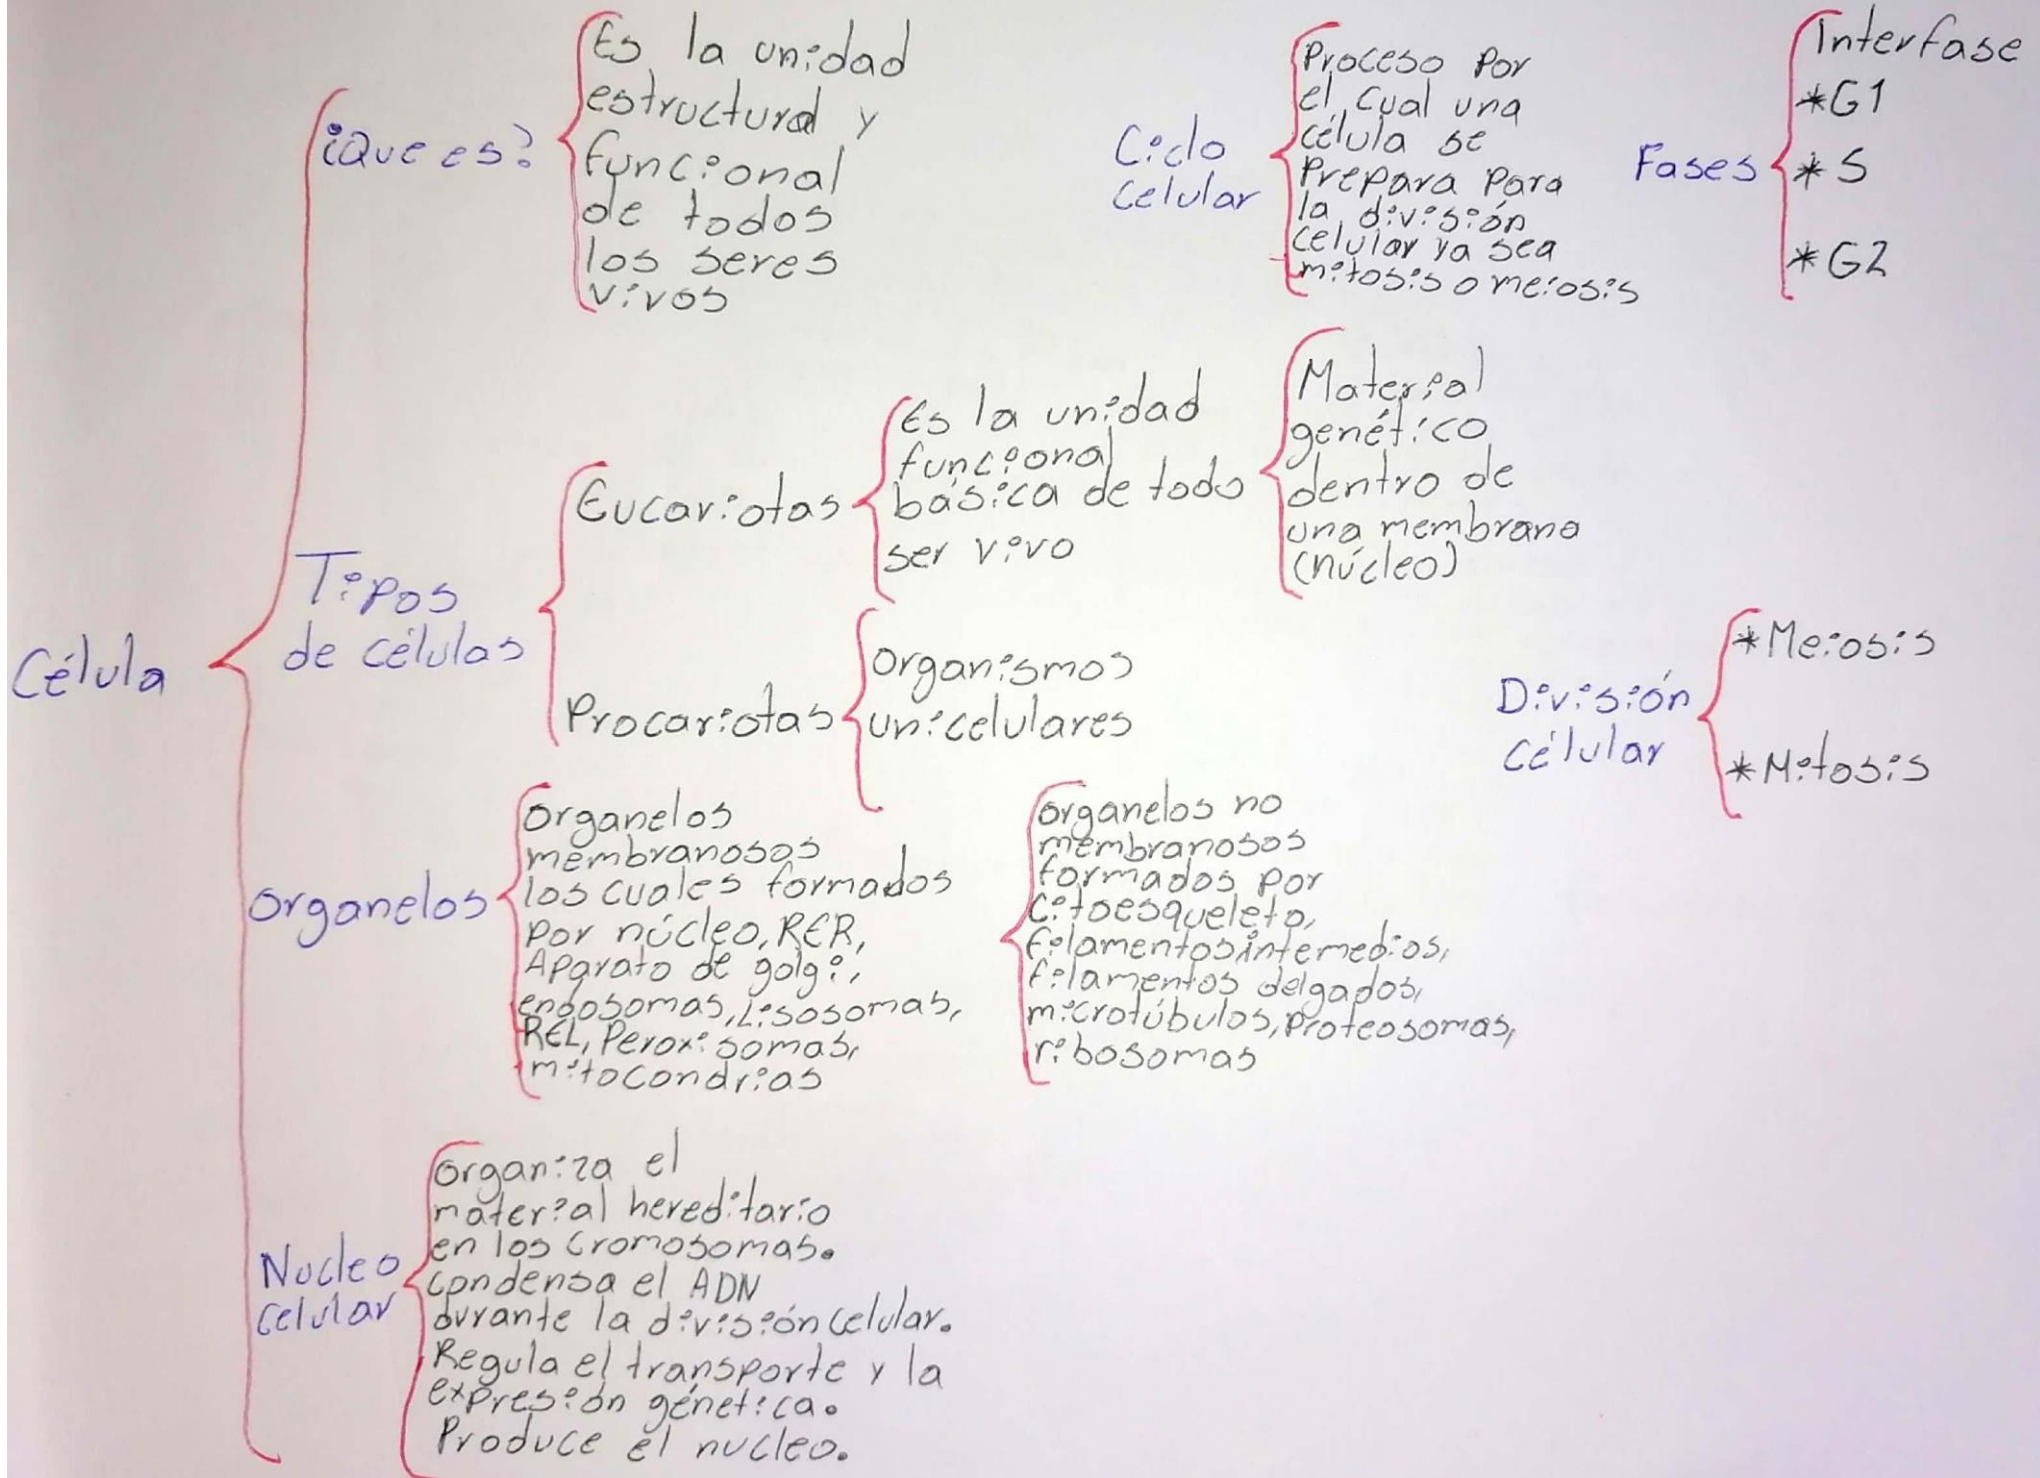 Célula
¿Que es?
Es la unidad
estructural y
funcional
de todos
los seres
vivos
Tipos
de células
Eucariotas
Es la unidad
funcional
básica de todo
ser vivo
Material
genético
dentro de
una membrana
(núcleo)
Procariotas
organismos
unicelulares
organelos
organelos
membranosos
los cuales formados
por núcleo, RER,
Aparato de golgi,
endosomas, Lisosomas,
REL, Peroxisomas,
mitocondrias
organelos no
membranosos
formados por
citoesqueleto,
filamentos intemedios,
filamentos delgados,
microtúbulos, proteosomas,
ribosomas
Nucleo
celular
organiza el
material hereditario
en los cromosomas.
condensa el ADN
durante la división celular.
Regula el transporte y la
expresión génetica.
Produce el nucleo.
Ciclo
celular
Proceso Por
el cual una
célula se
Prepara Para
la división
celular ya sea
mitosis o meiosis
Fases
Interfase
*G1
*S
*G2
División
célular
*Meiosis
*Mitosis